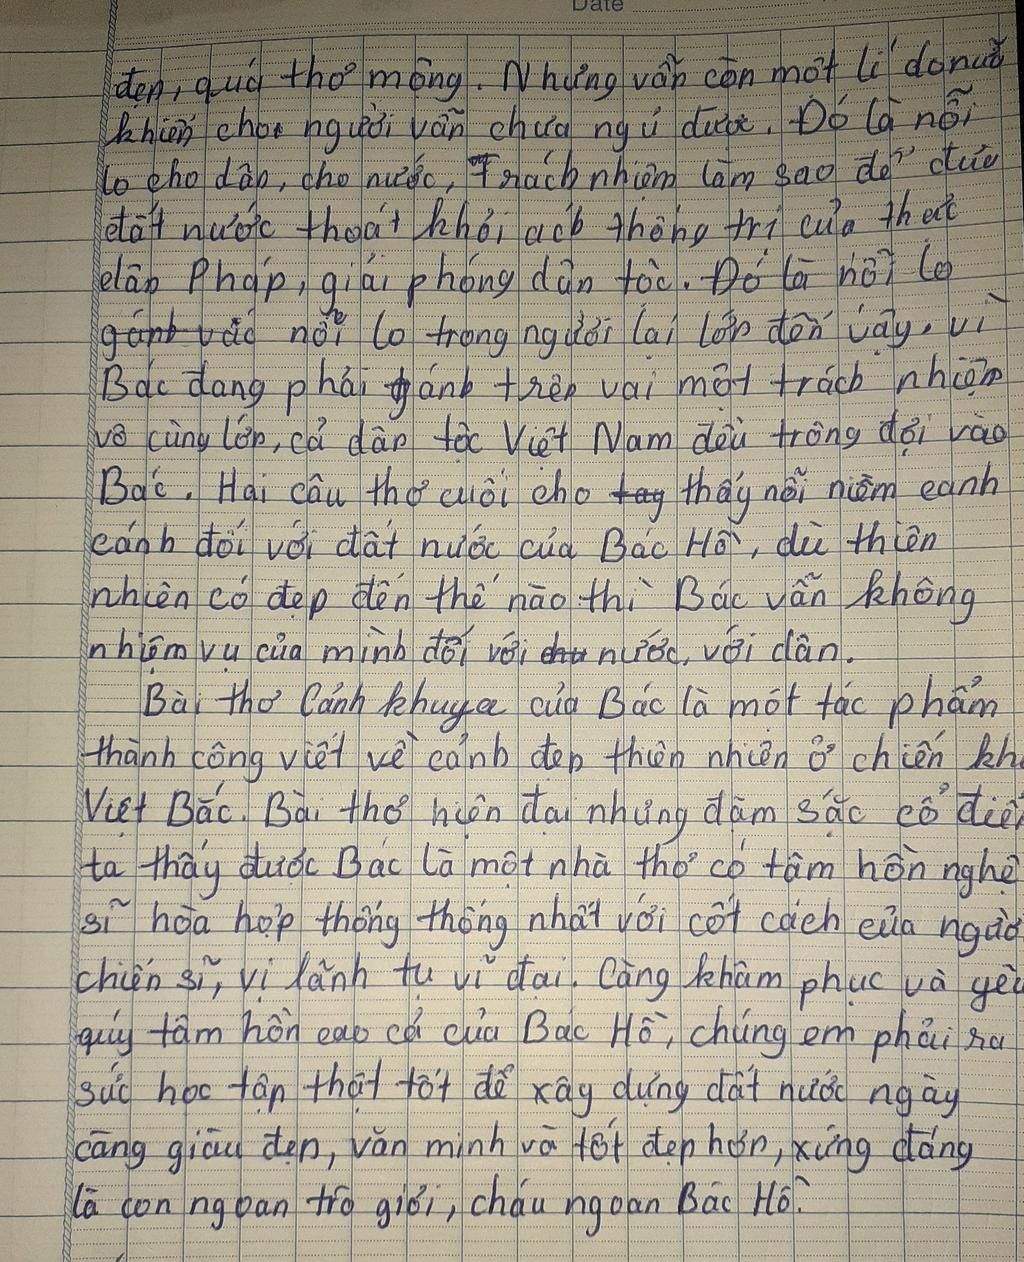 Date
đẹp, quá thơ mộng. Nhưng vẫn còn một lí do nuã
khiến cho người vẫn chưa ngủ được. Đó là nỗi
lo cho dân, cho nước, Trách nhiệm làm sao để đưa
đất nước thoát khỏi ách thống trị của thực
dân Pháp, giải phóng dân tộc. Đó là nỗi lo
gánh vác nỗi lo trong người lại lớn đến vậy, vì
Bác đang phải gánh trên vai một trách nhiệm
vô cùng lớn, cả dân tộc Việt Nam đều trông đợi vào
Bác. Hai câu thơ cuối cho tay thấy nỗi niềm canh
cánh đối với đất nước của Bác Hồ, dù thiên
nhiên có đẹp đến thế nào thì Bác vẫn không
nhiệm vụ của mình đối với nước, với dân.
Bài thơ Cảnh khuya của Bác là một tác phẩm
thành công viết về cảnh đẹp thiên nhiên ở chiến kh
Việt Bắc. Bài thơ hiện đại nhưng đậm sắc cổ điể
ta thấy được Bác là một nhà thơ có tâm hồn nghệ
sĩ hòa hợp thống thống nhất với cốt cách của ngườ
chiến sĩ, vị lãnh tụ vĩ đại. Càng khâm phục và yêu
quý tâm hồn cao cả của Bác Hồ, chúng em phải ra
sức học tập thật tốt để xây dựng đất nước ngày
càng giàu đẹp, văn minh và tốt đẹp hơn, xứng đáng
là con ngoan trò giỏi, cháu ngoan Bác Hồ.